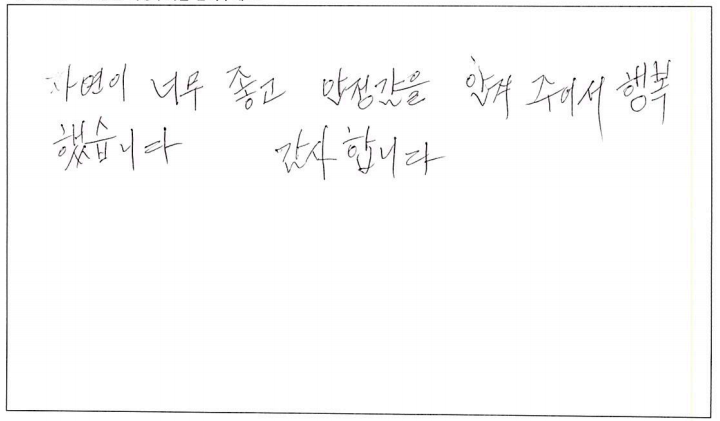 자연이 너무 좋고 안정감을 안겨 주어서 행복
했습니다 감사합니다